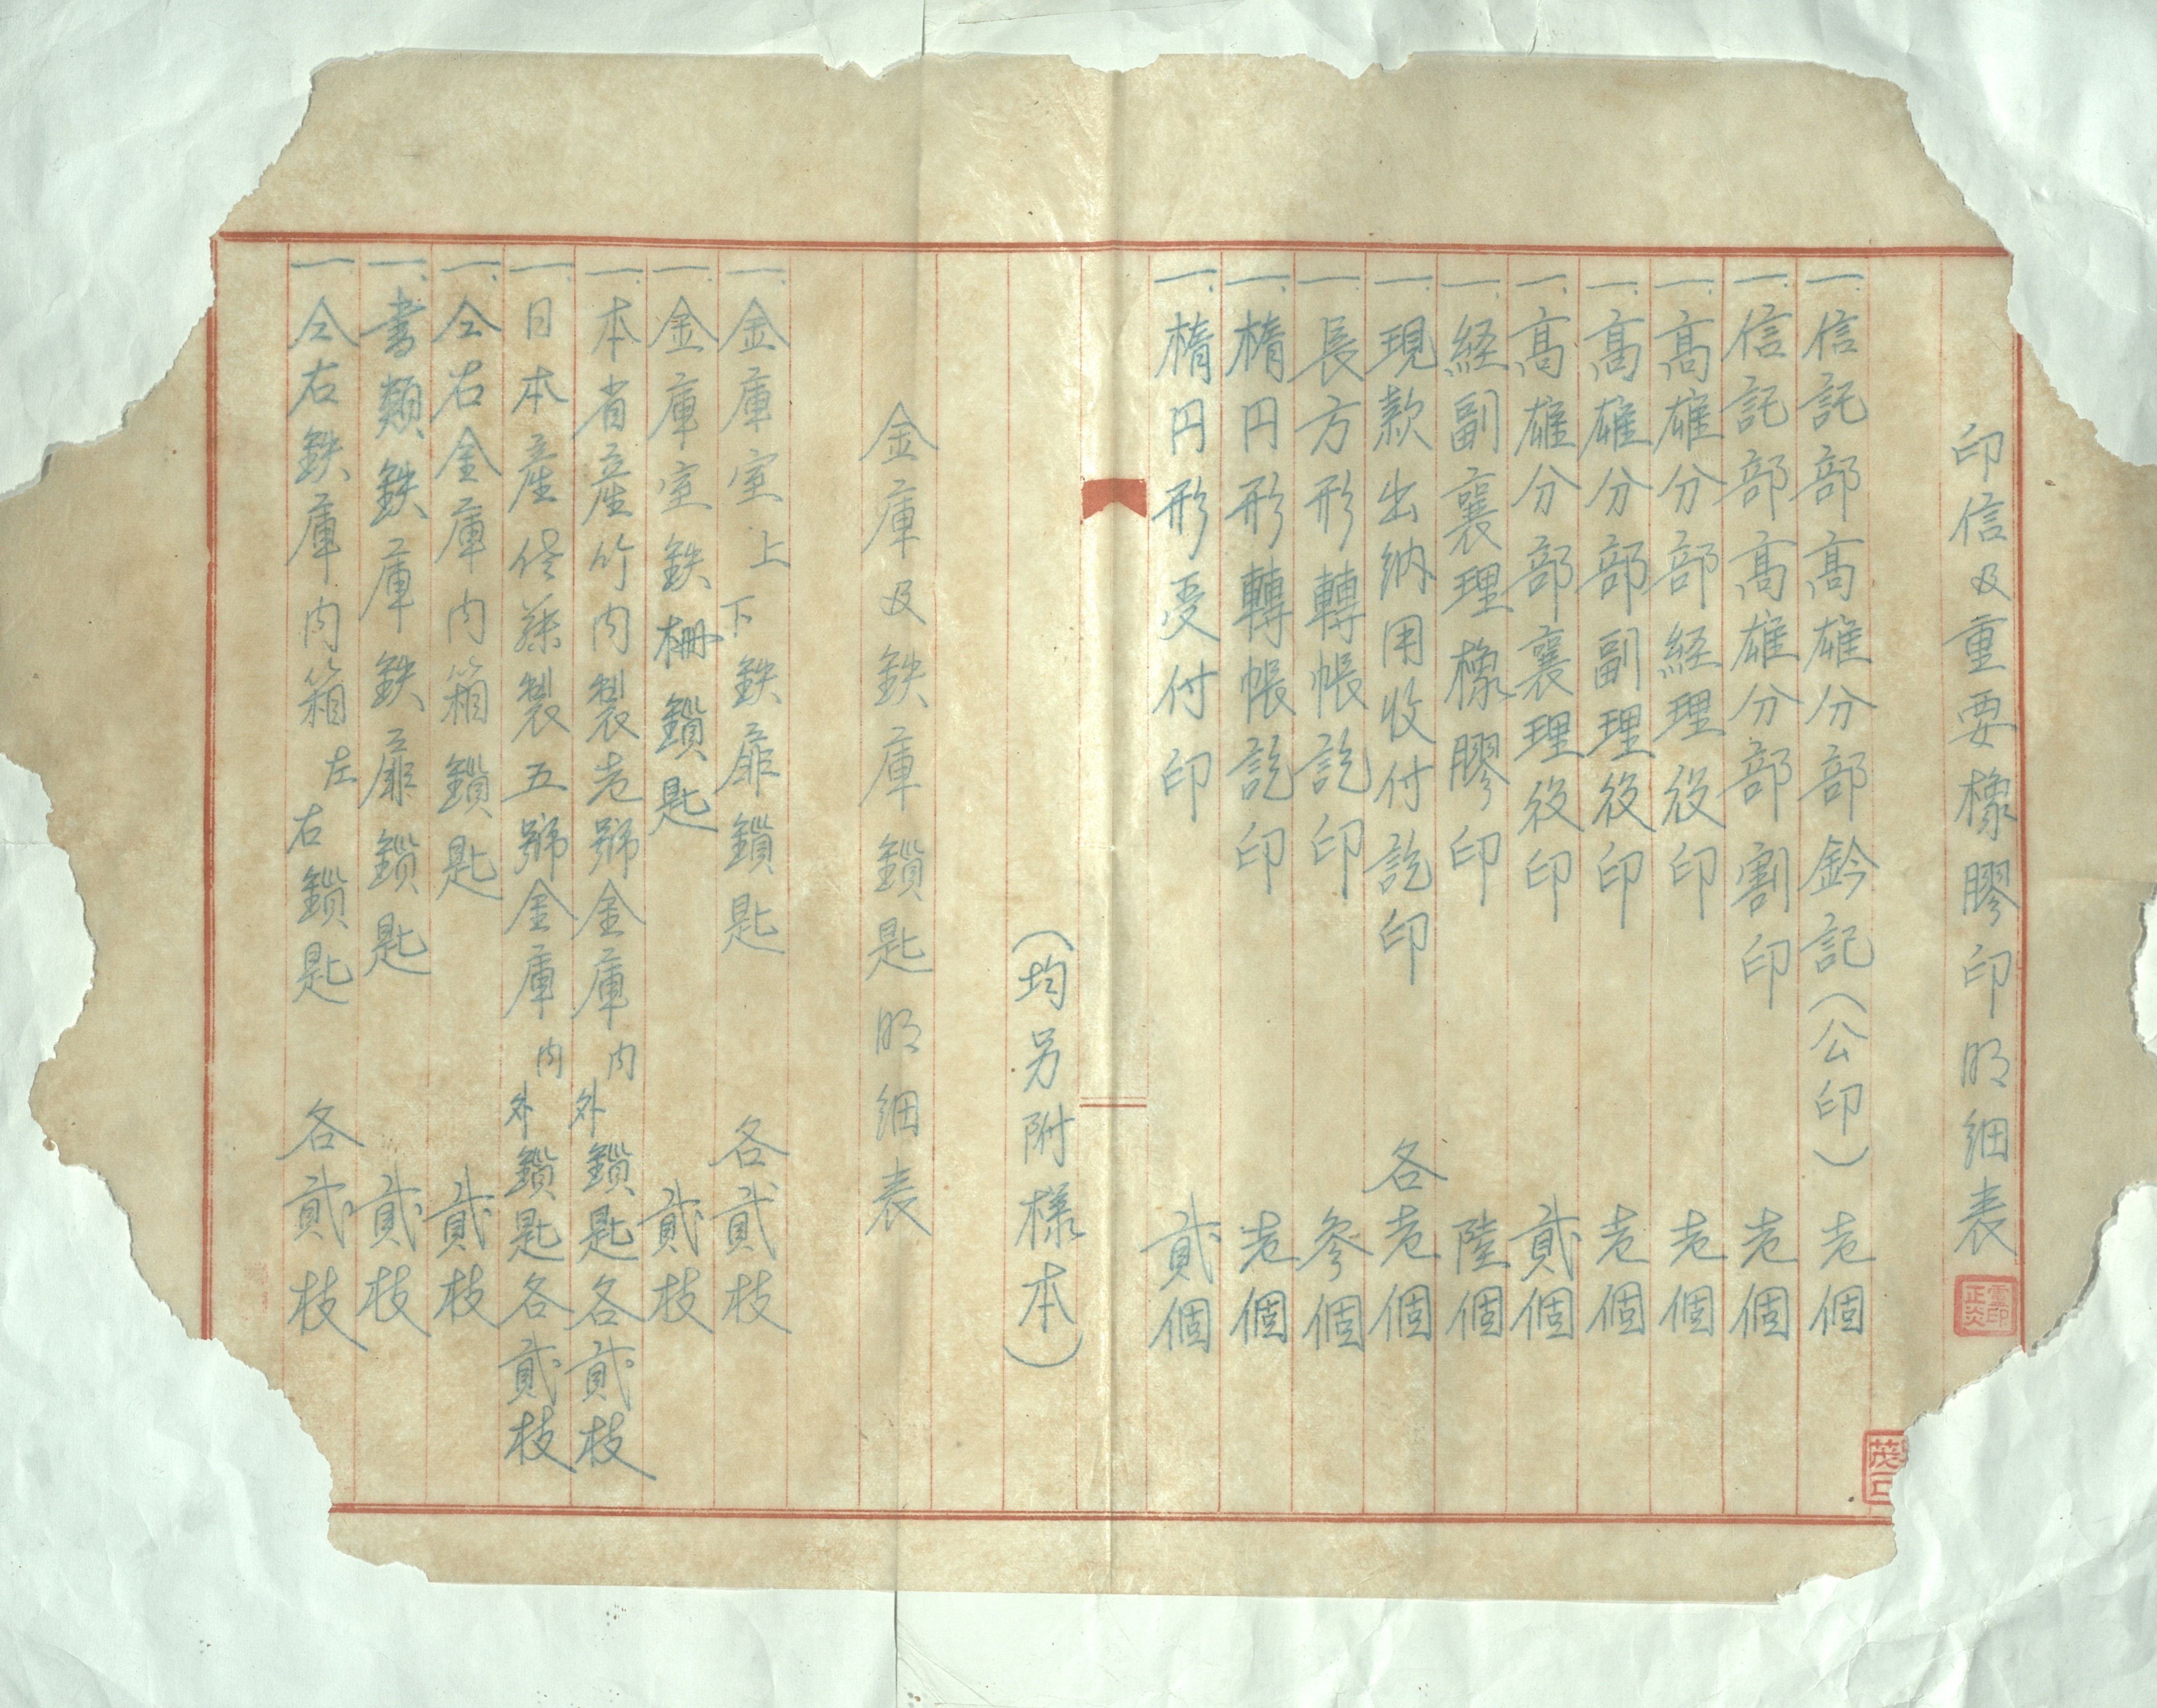 印信及重要橡膠印明細表
一、信託部高雄分部鈐記(公印) 壱個
一、信託部高雄分部割印 壱個
一、高雄分部経理役印 壱個
一、高雄分部副理役印 壱個
一、高雄分部襄理役印 貳個
一、経副襄理橡膠印 陸個
一、現款出納用收付訖印 各壱個
一、長方形轉帳訖印 參個
一、楕円形轉帳訖印 壱個
一、楕円形受付印 貳個
(均另附樣本)
金庫及鉄庫鎖匙明細表
一、金庫室上下鉄扉鎖匙 各貳枝
一、金庫室鉄柵鎖匙 貳枝
一、本省産竹内製壱號金庫内外鎖匙各貳枝
一、日本産佐藤製五號金庫内外鎖匙各貳枝
一、仝右金庫内箱鎖匙 貳枝
一、書類鉄庫鉄扉鎖匙 貳枝
一、仝右鉄庫内箱左右鎖匙 各貳枝